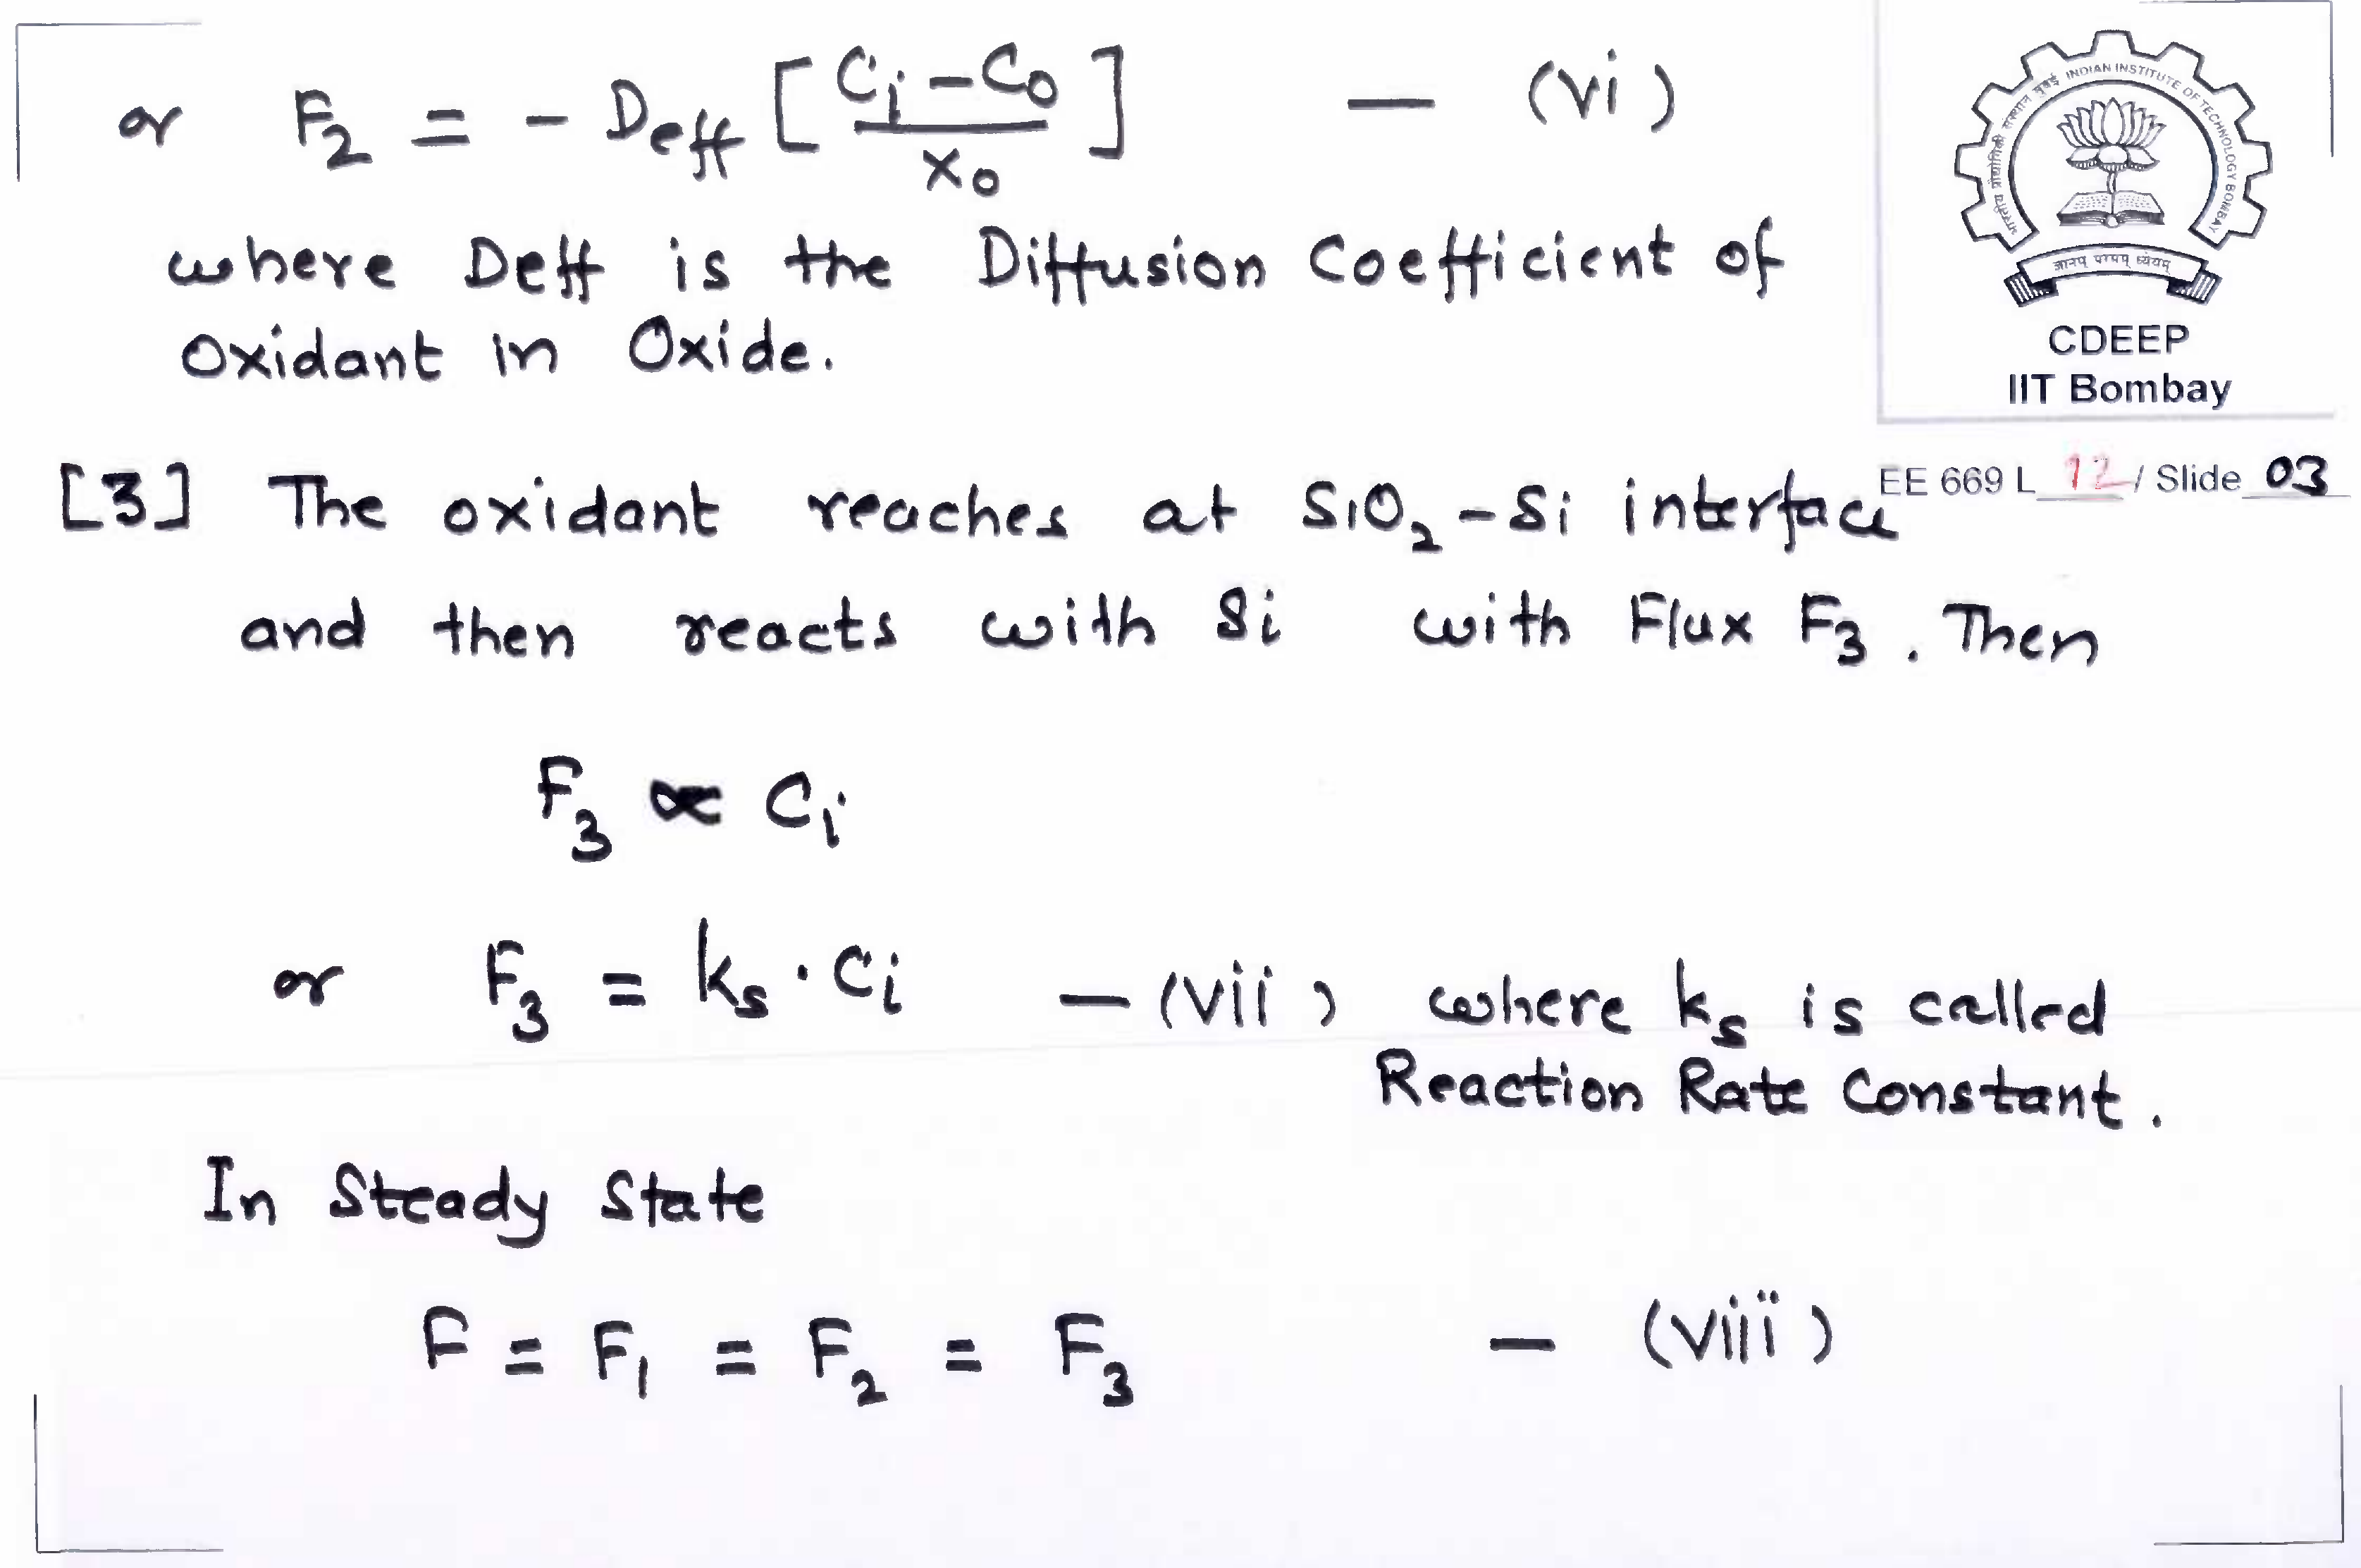 or F₂ = - Deff [ (Ci - Co) / xo ] — (vi)
where Deff is the Diffusion Coefficient of
Oxidant in Oxide.
भारतीय प्रौद्योगिकी संस्थान मुंबई INDIAN INSTITUTE OF TECHNOLOGY BOMBAY
ज्ञानम् परमम् ध्येयम्
CDEEP
IIT Bombay
EE 669 L 12 / Slide 03
[3] The oxidant reaches at SiO₂-Si interface
and then reacts with Si with Flux F₃. Then
F₃ ∝ Ci
or F₃ = ks · Ci — (vii) where ks is called
Reaction Rate Constant.
In Steady State
F = F₁ = F₂ = F₃ — (viii)